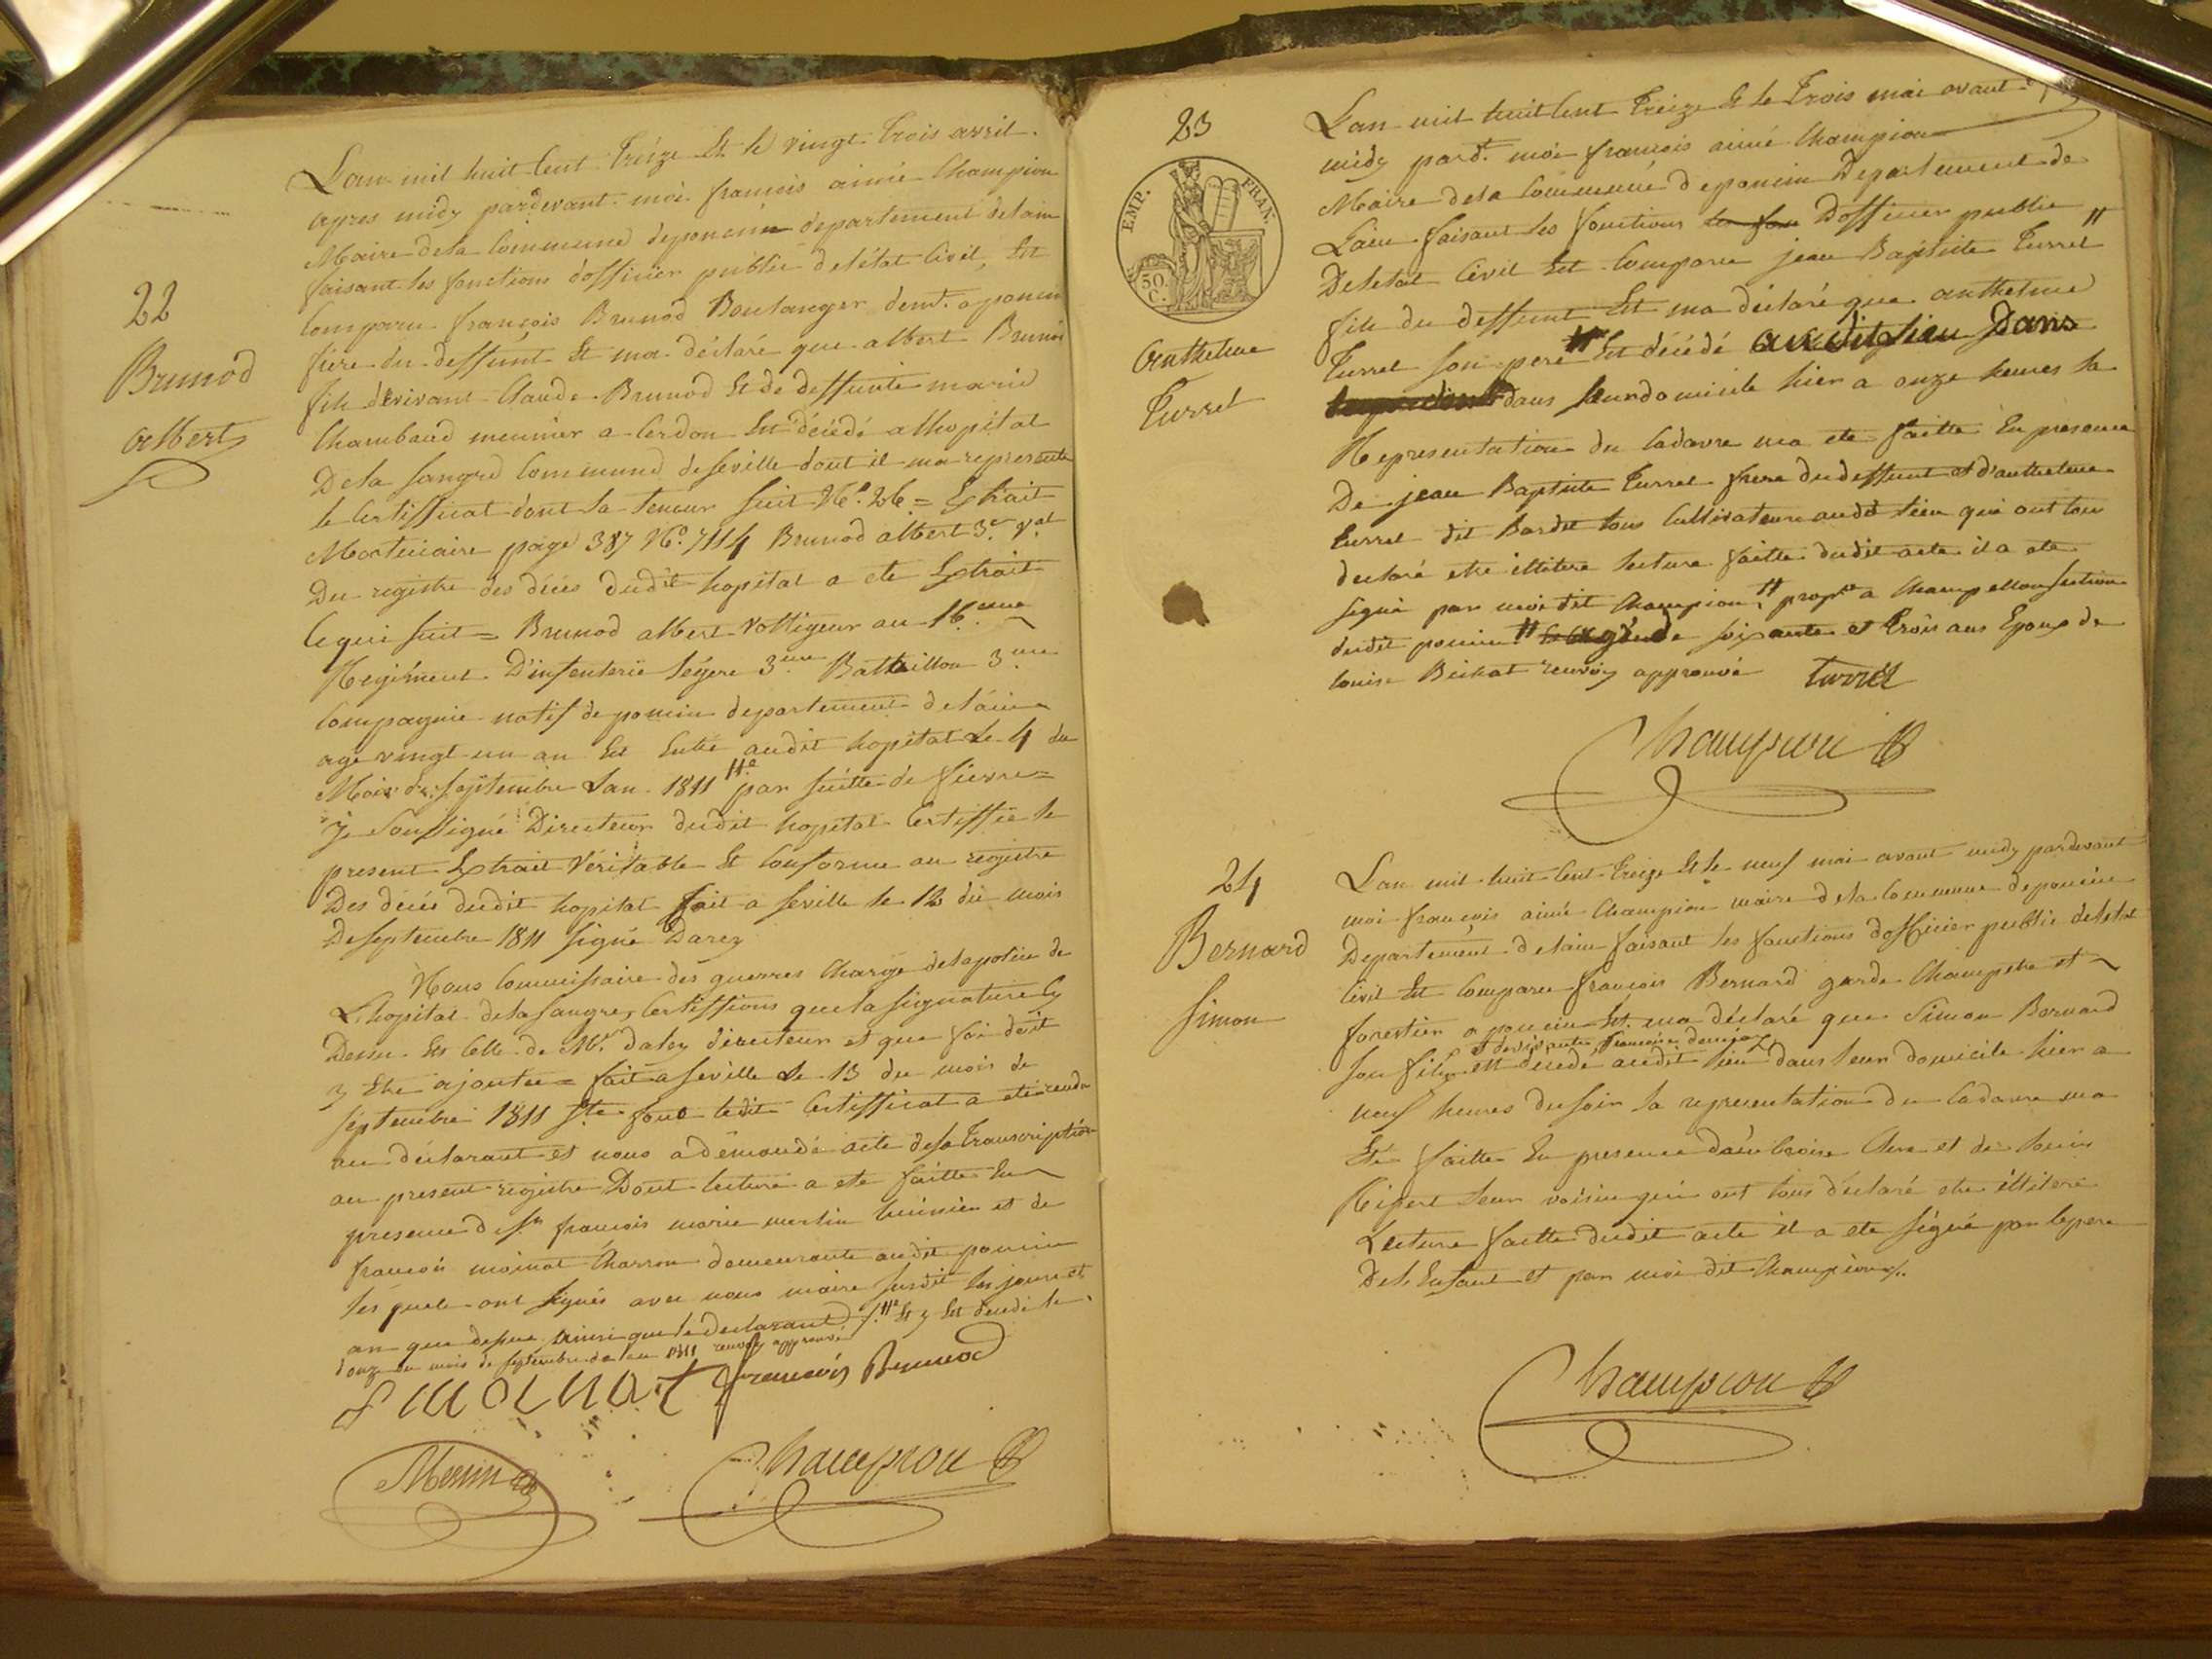 22
Brunod
albert
L'an mil huit Cent Treize Et le vingt Trois avril
apres midy pardevant moi françois aimé Champion
Maire dela Commune deponcin departement delain
faisant les fonctions dofficier public deletat Civil, Est
Comparu françois Brunod Boulanger demt. a poncin
frere du deffunt Et ma déclaré que albert Brunod
fils vivant Claude Brunod Et de deffunte marie
Chambaud meunier a Cerdon Est décédé alhopital
Dela sangre Commune deseville dont il ma representé
le Certifficat dont la teneur suit No. 26 = Extrait
Mortuaire page 387 No. 7114 Brunod albert 3e
Du registre des décés dudit hopital a ete Extrait
Ce qui suit = Brunod albert Voltigeur au 16eme
Regiment D'infenterie légere 3eme Battaillon 3eme
Compagnie natif deponcin departement delain
age vingt un an Est Entré audit hopital Le 4 du
Mois de septembre Lan 1811 par suitte de fievre =
Je Soussigné Directeur dudit hopital Certiffie le
present Extrait Véritable Et Conforme au registre
Des décés dudit hopital fait a seville le 12 du mois
Deseptembre 1811 signé Darez
Nous Commissaire des guerres Chargé delapolice de
L'hopital delasangre, Certiffions quela signature Cy
Dessus Est Celle de Mr. daley directeur et que foi doit
y Etre ajoutée = fait a seville Le 13 du mois de
septembre 1811 ledit Certifficat a ete rendu
au déclarant et nous a demandé acte desa Transcription
au present registre Dont lecture a ete faitte En
presence de Sr. françois marie merlin huissier et de
françois moinat Charron demeurants audit poncin
les quels ont signés avec nous maire susdit les jour et
an que dessus ainsi que le declarant Et y Est decedé le
douze du mois de septembre de lan 1811 renvoy approuvé
f moinat françois Brunod
Merlin Champion
23
EMP. FRAN.
50 C.
Anthelme
Turrel
L'an mil huit Cent Treize Et le Trois mai avant
midy pardt. moi françois aimé Champion
Maire dela Commune deponcin Departement de
Lain faisant les fonctions Dofficier public
Deletat Civil Est Comparu jean Baptiste Turrel
fils du deffunt Et ma déclaré que anthelme
Turrel son pere Est décédé audit lieu Dans
dans leur domicile hier a onze heures la
Representation du Cadavre ma ete faitte En presence
De jean Baptiste Turrel frere du deffunt et d'anthelme
turrel dit Bardet tous Cultivateurs audit lieu qui ont tous
declaré etre illitere lecture faitte dudit acte il a ete
signé par moi dit Champion, propre a Champellon section
dudit poncin agé de soixante et trois ans Epoux de
louise Beichat renvoy approuvé turrel
Champion
24
Bernard
Simon
L'an mil huit Cent Treize Et le neuf mai avant midy pardevant
moi françois aimé Champion maire dela Commune deponcin
Departement delain faisant les fonctions dofficier public deletat
Civil Est Comparu françois Bernard garde Champetre et
forestier a poncin Et ma déclaré que Simon Bernard
son fils est décédé audit lieu dans leur domicile hier a
neuf heures dusoir la representation du Cadavre ma
Eté faitte En presence dambroise Cleve et de louis
Ripert leur voisin qui ont tous déclaré etre illitere
Lecture faitte dudit acte il a ete signé par lepere
Del Enfant et par moi dit Champion
Champion